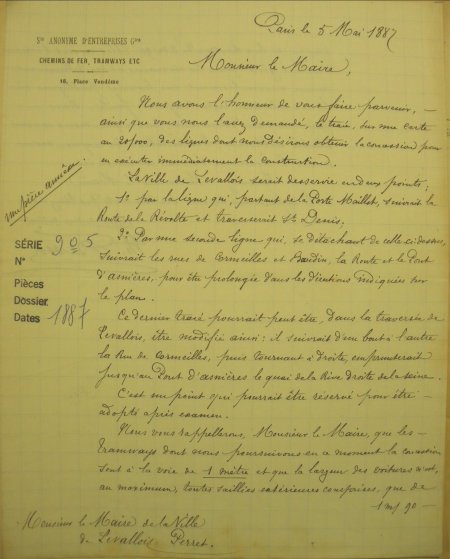 Paris le 5 Mai 1887
Sté ANONYME D'ENTREPRISES Gles
CHEMINS DE FER, TRAMWAYS ETC
16, Place Vendôme
Monsieur le Maire,
Nous avons l'honneur de vous faire parvenir,
ainsi que vous nous l'avez demandé, le tracé, sur une carte
au 20/000, des lignes dont nous désirons obtenir la concession pour
en exécuter immédiatement la construction.
La Ville de Levallois serait desservie en deux points;
1° par la ligne qui, partant de la Porte Maillot, suivrait la
Route de la Révolte et traverserait St Denis.
une pièce annexée.
2° Par une seconde ligne qui, se détachant de celle ci-dessus,
suivrait les rues de Cormeilles et Baudin, la Route et le Pont
d'asnières, pour être prolongée dans les directions indiquées sur
le plan.
SÉRIE
N° 905
Pièces
Dossier
Dates 1887
Ce dernier tracé pourrait peut être, dans la traversée de
Levallois, être modifié ainsi: il suivrait d'un bout à l'autre
la Rue de Cormeilles, puis tournant à droite, emprunterait
jusqu'au Pont d'asnières le quai de la Rive droite de la seine.
C'est un point qui pourrait être réservé pour être
adopté après examen.
Nous vous rappellerons, Monsieur le Maire, que les
tramways dont nous poursuivons en ce moment la concession
sont à la voie de 1 mètre et que la largeur des voitures n'est,
au maximum, toutes saillies extérieures comprises, que de
1m,90
Monsieur le Maire de la Ville
de Levallois Perret.